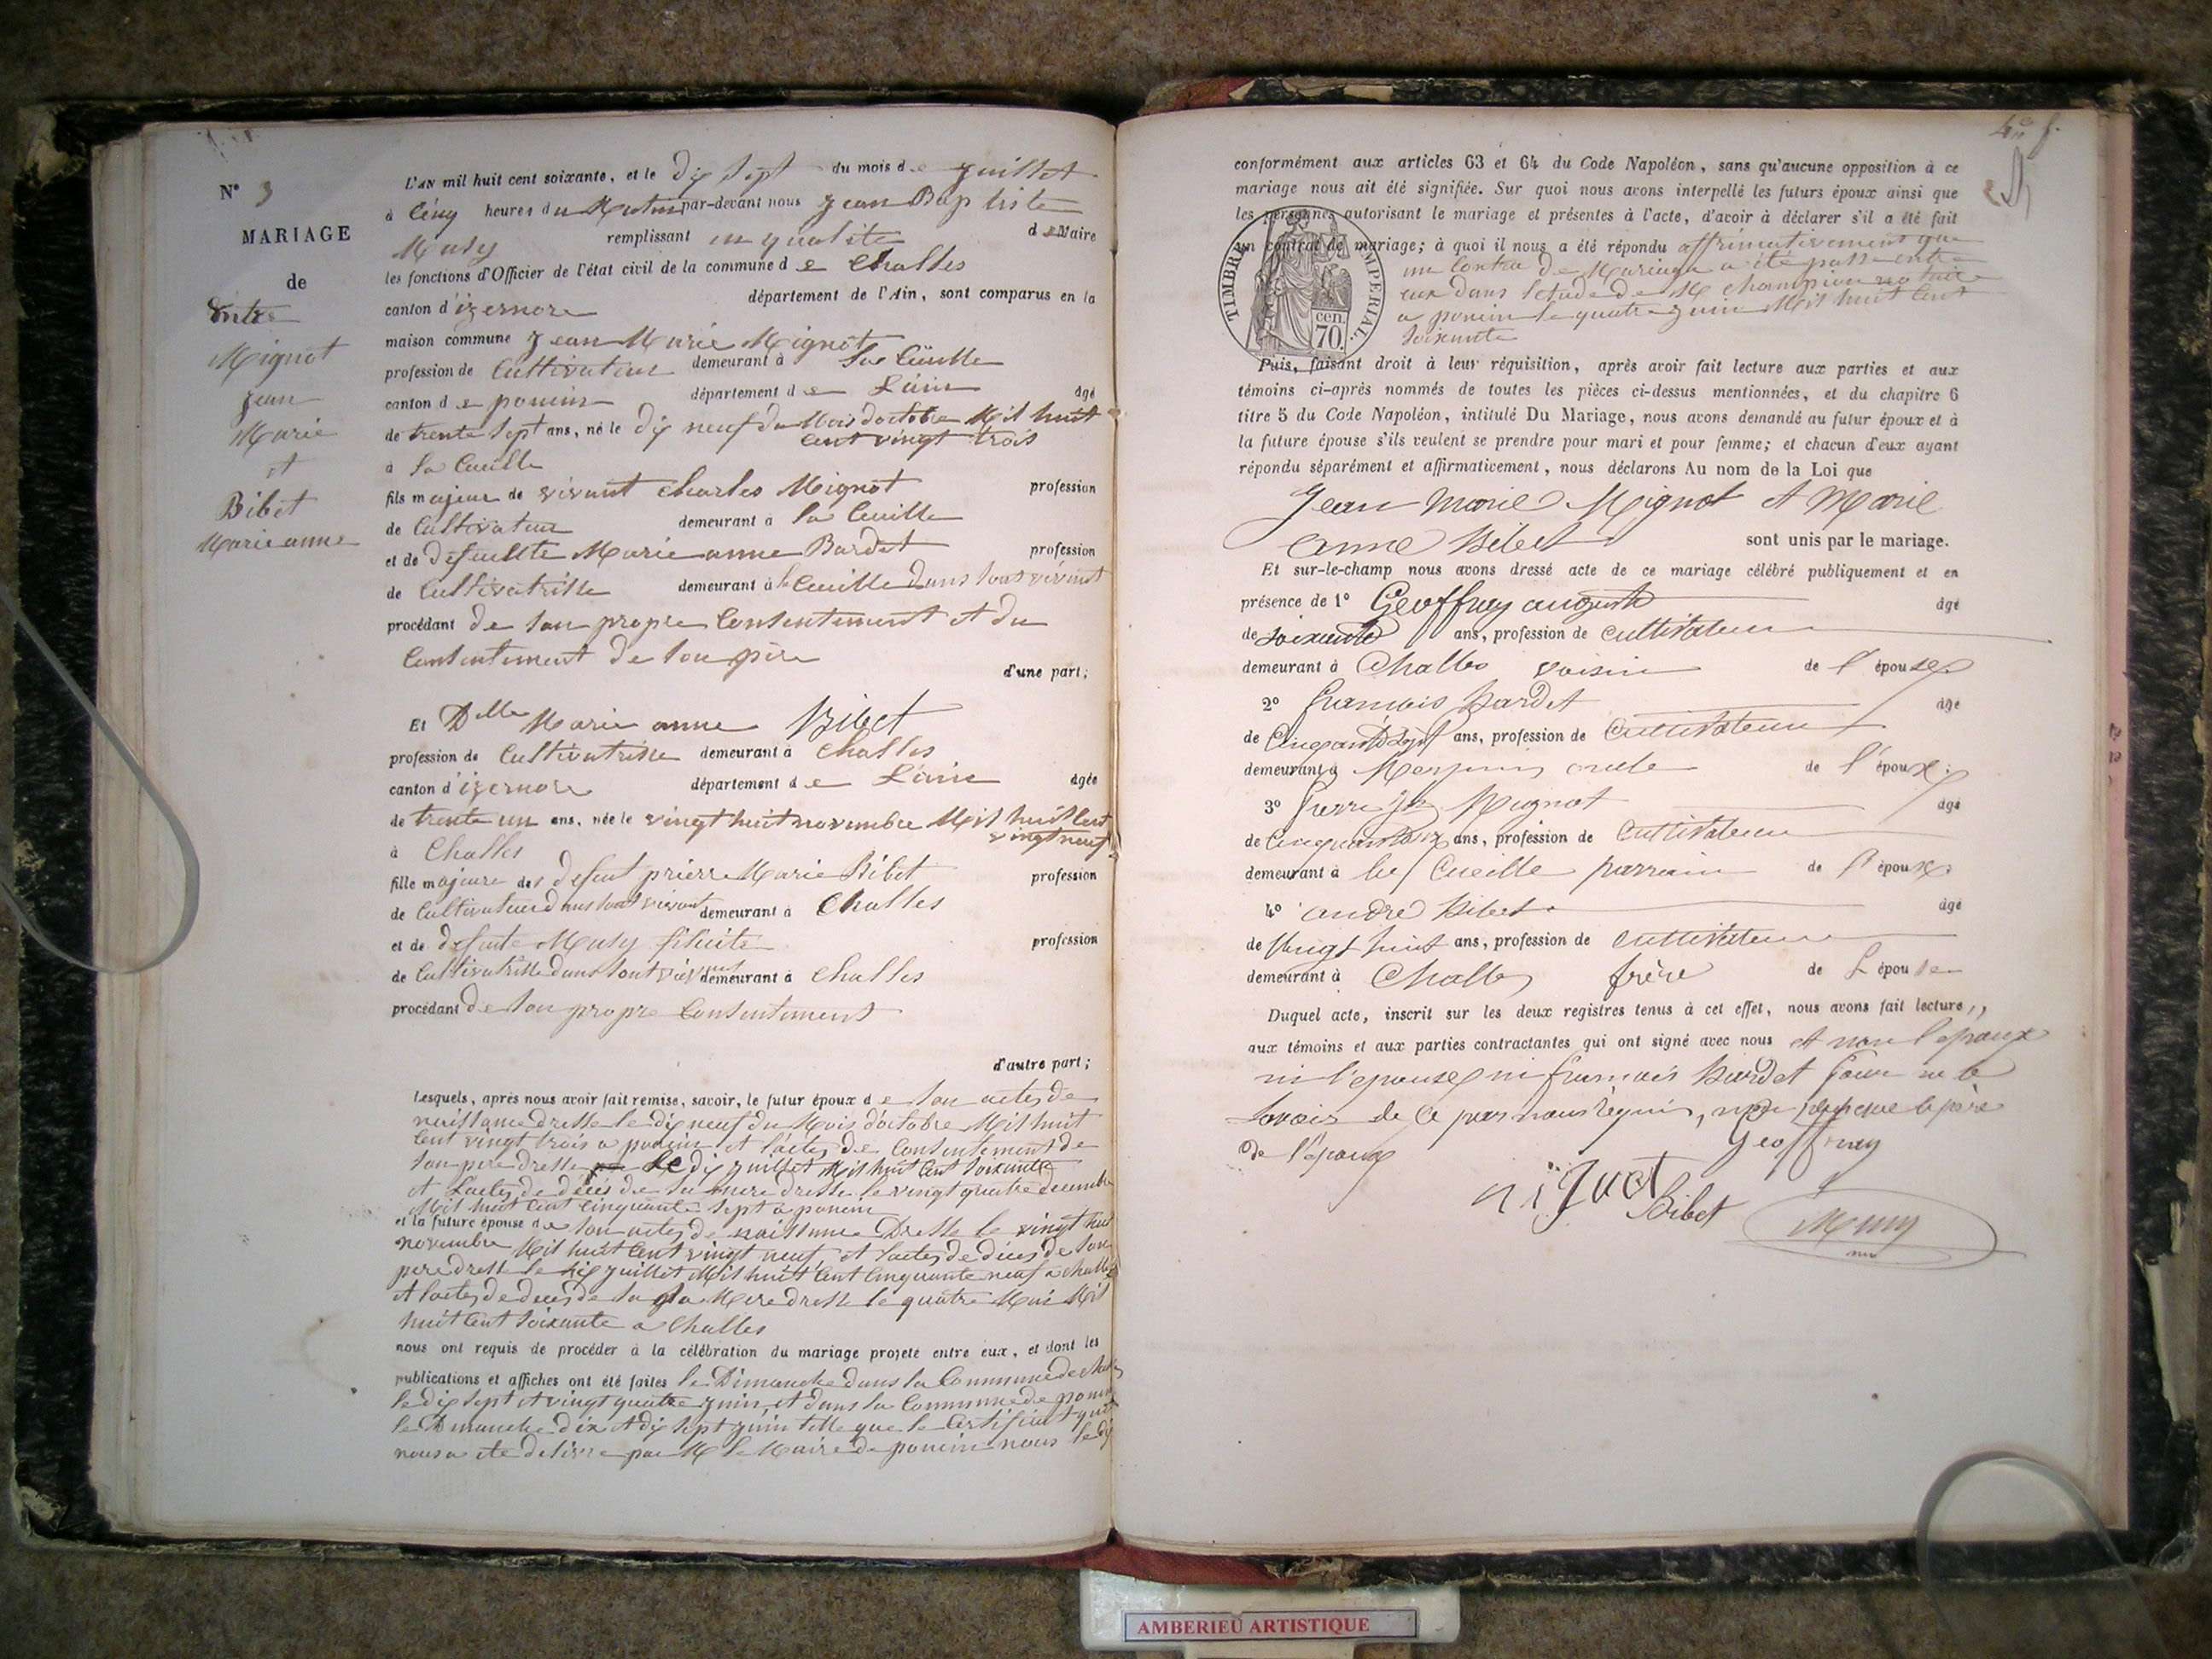 N° 3
MARIAGE
de
Entre
Mignot
Jean
Marie
et
Bibet
Marie anne
L'AN mil huit cent soixante, et le dix sept du mois de juillet
à Cinq heures du Matin par-devant nous Jean Baptiste
Musy remplissant en qualite de Maire
les fonctions d'Officier de l'état civil de la commune de Challes
canton d'izernore département de l'Ain, sont comparus en la
maison commune Jean Marie Mignot
profession de Cultivateur demeurant à La Cueille
canton de poncin département de L'ain âgé
de trente sept ans, né le dix neuf du Mois doctobre Mil huit
cent vingt trois
à la Cueille
fils majeur de vivant Charles Mignot profession
de Cultivateur demeurant à la Cueille
et de defuntte Marie anne Bardet profession
de Cultivatrisse demeurant à la Cueille dans sont vivant
procédant de son propre Consentement et du
Consentement de son père
d'une part;
Et Dlle Marie anne Bibet
profession de Cultivatrisse demeurant à Challes
canton d'izernore département de L'ain âgée
de trente un ans, née le vingt huit novembre Mil huit Cent
vingt neuf
à Challes
fille majeure de defunt prierre Marie Bibet profession
de Cultivateur dans sont vivant demeurant à Challes
et de defunte Musy filicite profession
de Cultivatrisse dans sont vivant demeurant à Challes
procédant de son propre Consentement
d'autre part;
Lesquels, après nous avoir fait remise, savoir, le futur époux de son actes de
naissance dresse le dix neuf du Mois d'octobre Mil huit
Cent vingt trois a poncin et l'actes de Consentement de
son pere dresse le dix juillet Mil huit Cent soixante
et L'actes de décès de sa mere dresse le vingt quatre decembre
Mil huit Cent Cinquante sept a poncin
et la future épouse de son actes de naissance Dresse le vingt huit
novembre Mil huit Cent vingt neuf et l'actes de déces de son
pere dresse le dix juillet Mil huit Cent Cinquante neuf a Challes
et l'actes de deces de sa Mere dresse le quatre Mai Mil
huit Cent soixante a Challes
nous ont requis de procéder à la célébration du mariage projeté entre eux, et dont les
publications et affiches ont été faites le Dimanche dans la Commune de
le dix sept et vingt quatre juin, et dans la Commune de poncin
le Dimanche dix et dix sept juin telle que le Certificat qui
nous a ete delivre par M le Maire de poncin nous le
conformément aux articles 63 et 64 du Code Napoléon, sans qu'aucune opposition à ce
mariage nous ait été signifiée. Sur quoi nous avons interpellé les futurs époux ainsi que
les personnes autorisant le mariage et présentes à l'acte, d'avoir à déclarer s'il a été fait
un contrat de mariage; à quoi il nous a été répondu affrimativement que
un Contra de Mariage a été passe entre
eux dans l'etude de M Champion notaire
a poncin le quatre juin Mil huit Cent
soixante
TIMBRE IMPÉRIAL.
cen.
70.
Puis, faisant droit à leur réquisition, après avoir fait lecture aux parties et aux
témoins ci-après nommés de toutes les pièces ci-dessus mentionnées, et du chapitre 6
titre 5 du Code Napoléon, intitulé Du Mariage, nous avons demandé au futur époux et à
la future épouse s'ils veulent se prendre pour mari et pour femme; et chacun d'eux ayant
répondu séparément et affirmativement, nous déclarons Au nom de la Loi que
Jean Marie Mignot et Marie
Anne Bibet sont unis par le mariage.
Et sur-le-champ nous avons dressé acte de ce mariage célébré publiquement et en
présence de 1° Geoffray auguste âgé
de soixante ans, profession de cultivateur
demeurant à Challes voisin de l'épouse
2° francois Bardet âgé
de Cinquante Sept ans, profession de Cultivateur
demeurant à oncle de l'époux;
3° Pierre Mignot âgé
de Cinquante Six ans, profession de Cultivateur
demeurant à la Cueille parrain de l'époux
4° andré Bibet âgé
de Vingt huit ans, profession de Cultivateur
demeurant à Challes frère de L'épouse
Duquel acte, inscrit sur les deux registres tenus à cet effet, nous avons fait lecture,
aux témoins et aux parties contractantes qui ont signé avec nous et non l'epoux
ni l'epouse ni francois Bardet pour ne le
savoir de ce par nous requis, le père
de l'époux
Geoffray
Bibet
Musy
AMBERIEU ARTISTIQUE